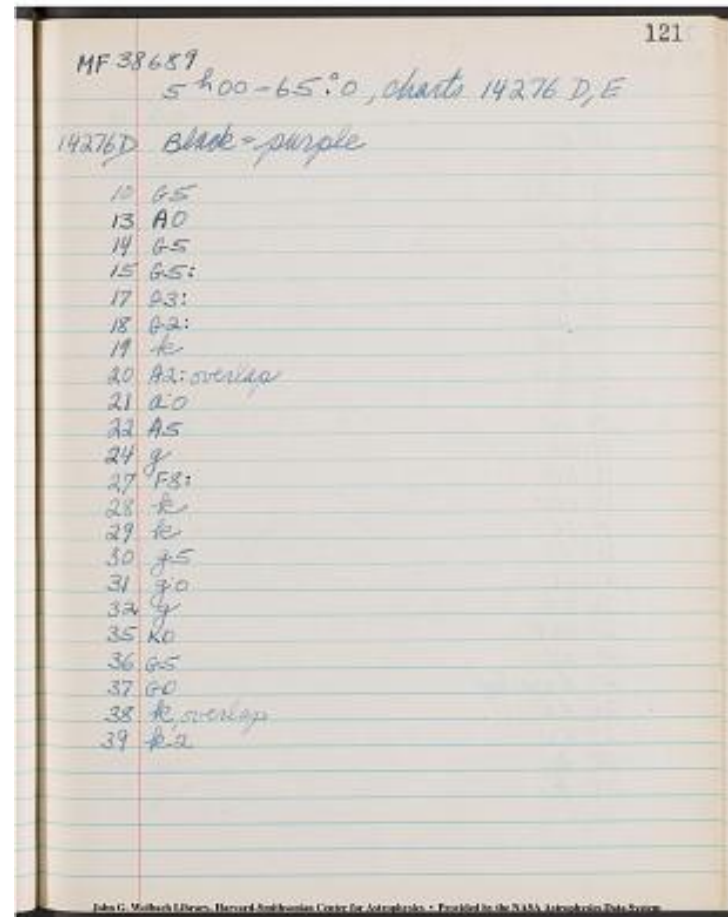 121
MF 38689
5 h 00 - 65.°0, charts 14276 D, E
14276D Black = purple
10 G5
13 A0
14 G5
15 G5:
17 A3:
18 G2:
19 k
20 A2: overlap
21 a0
22 A5
24 g
27 F8:
28 k
29 k
30 g5
31 g0
32 g
35 K0
36 G5
37 G0
38 k, overlap
39 k2
John G. Wolbach Library, Harvard-Smithsonian Center for Astrophysics • Provided by the NASA Astrophysics Data System